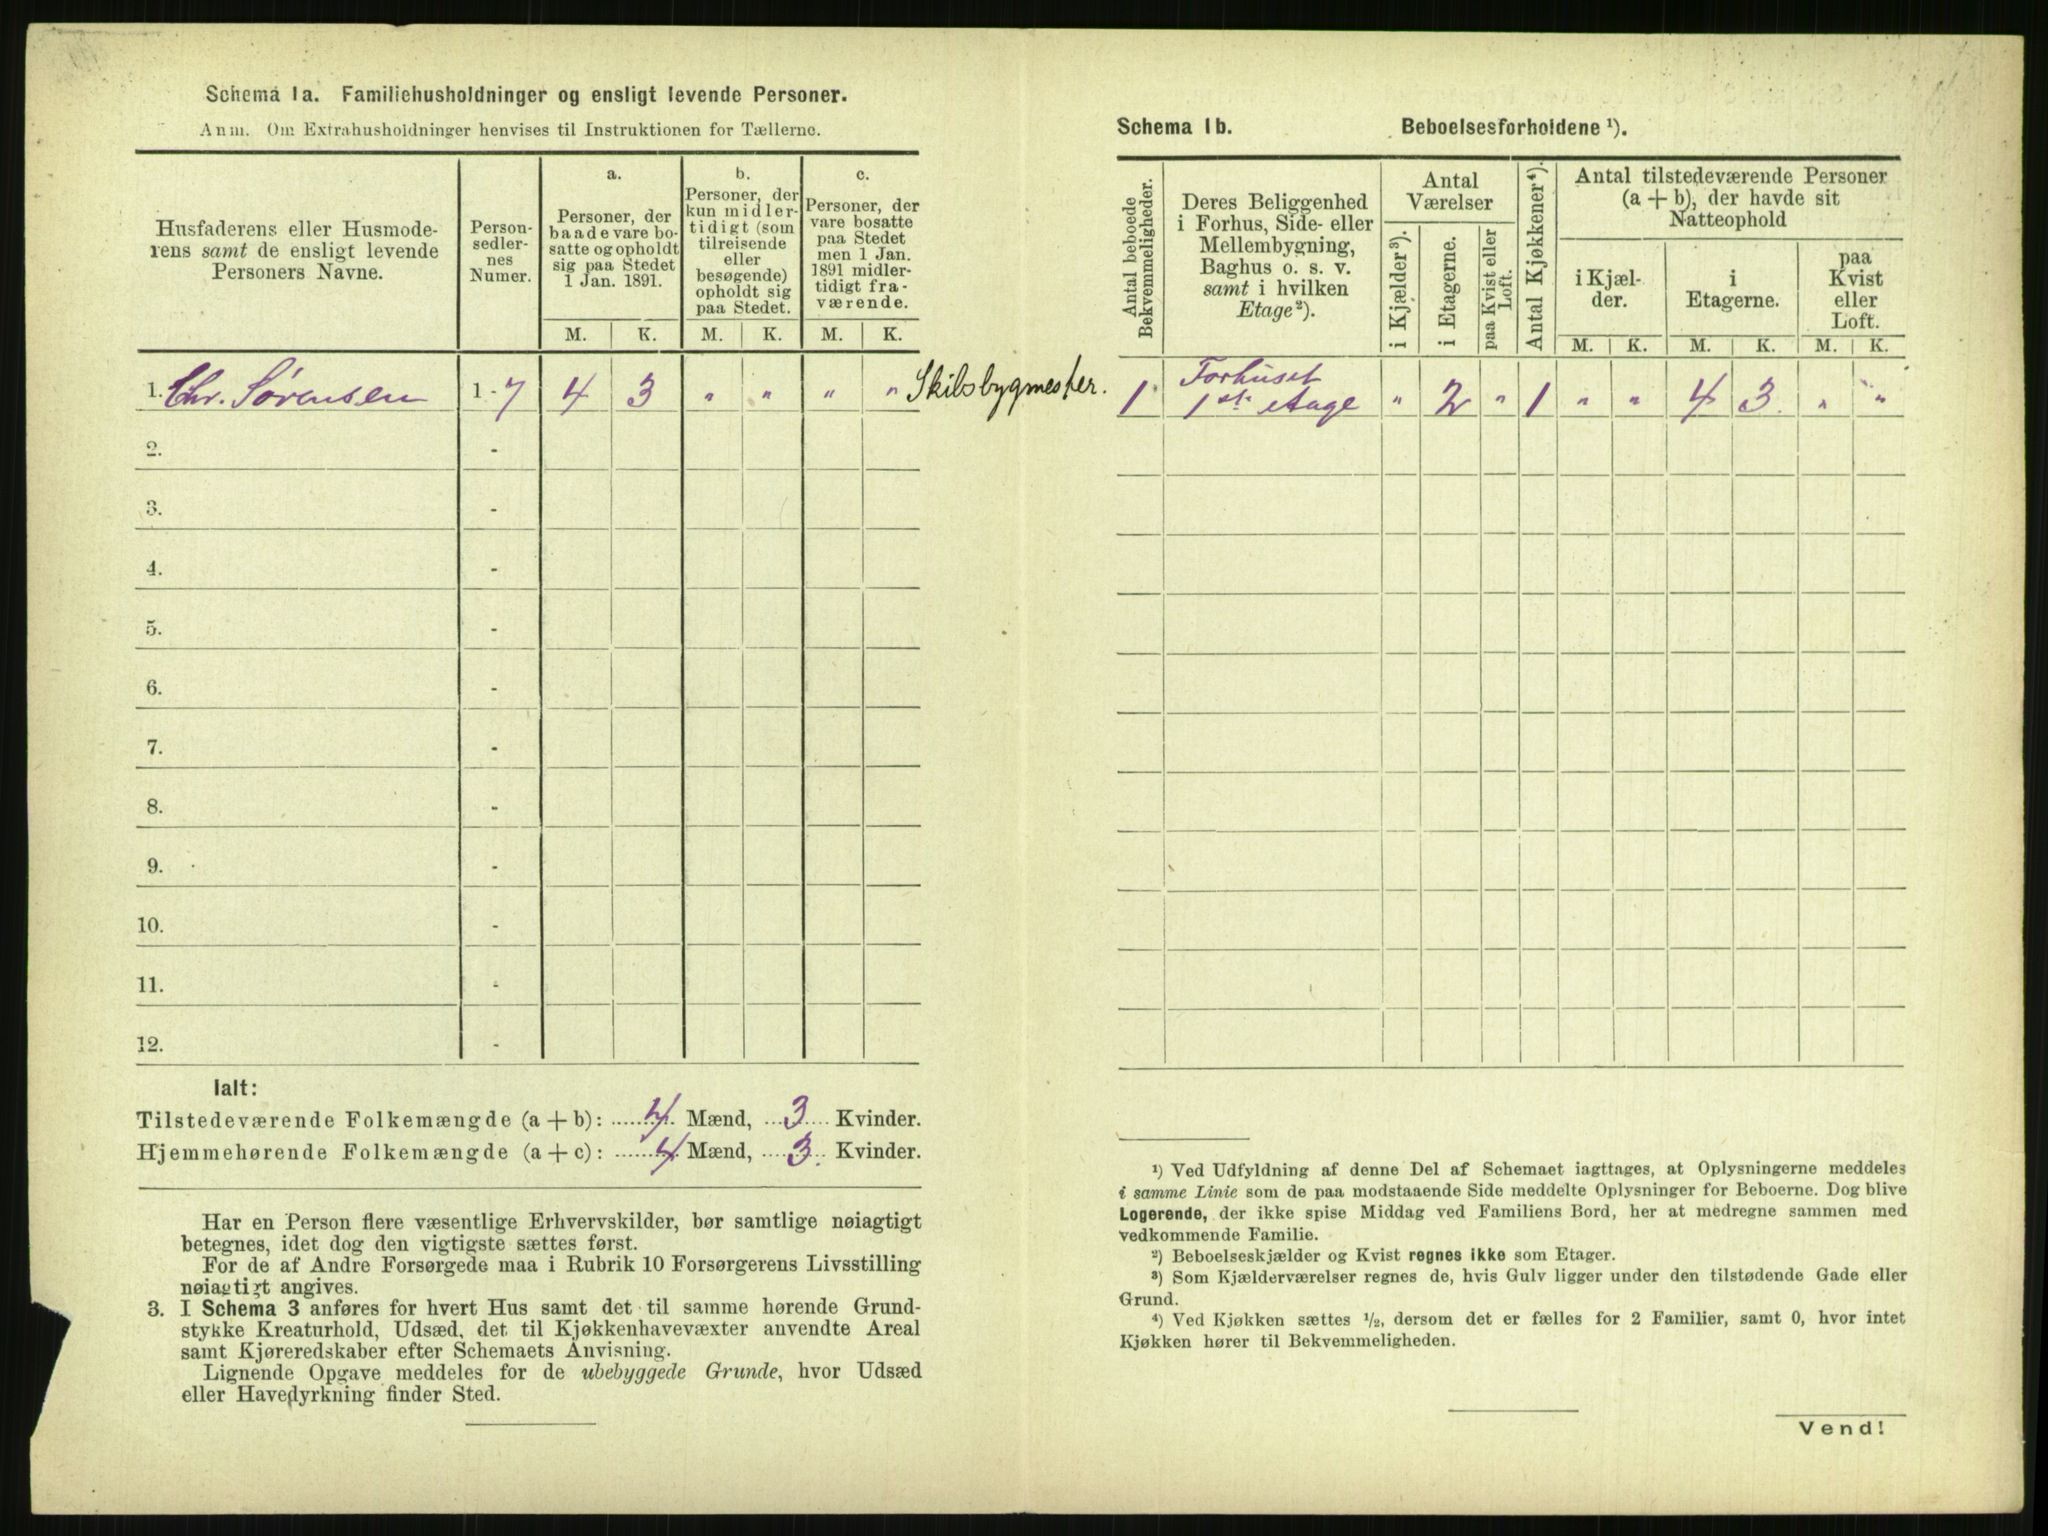 Schema 1a. Familiehusholdninger og ensligt levende Personer.
Anm. Om Extrahusholdninger henvises til Instruktionen for Tællerne.
Husfaderens eller Husmode-
rens samt de ensligt levende
Personers Navne.
Person-
sedler-
nes
Numer.
a.
Personer, der
baade vare bo-
satte og opholdt
sig paa Stedet
1 Jan. 1891.
b.
Personer, der
kun midler-
tidigt (som
tilreisende
eller
besøgende)
opholdt sig
paa Stedet.
c.
Personer, der
vare bosatte
paa Stedet
men 1 Jan.
1891 midler-
tidigt fra-
værende.
M. K. M. K. M. K.
1. Chr. Sørensen 1-7 4 3 " " " " Skibsbygmester.
2. -
3. -
4. -
5. -
6. -
7. -
8. -
9. -
10. -
11. -
12. -
Ialt:
Tilstedeværende Folkemængde (a + b): 4 Mænd, 3 Kvinder.
Hjemmehørende Folkemængde (a + c): 4 Mænd, 3 Kvinder.
Har en Person flere væsentlige Erhvervskilder, bør samtlige nøiagtigt
betegnes, idet dog den vigtigste sættes først.
For de af Andre Forsørgede maa i Rubrik 10 Forsørgerens Livsstilling
nøiagtigt angives.
3. I Schema 3 anføres for hvert Hus samt det til samme hørende Grund-
stykke Kreaturhold, Udsæd, det til Kjøkkenhavevæxter anvendte Areal
samt Kjøreredskaber efter Schemaets Anvisning.
Lignende Opgave meddeles for de ubebyggede Grunde, hvor Udsæd
eller Havedyrkning finder Sted.
Schema 1b. Beboelsesforholdene ¹).
Antal beboede
Bekvemmeligheder.
Deres Beliggenhed
i Forhus, Side- eller
Mellembygning,
Baghus o. s. v.
samt i hvilken
Etage²).
Antal
Værelser
i Kjælder³).
i Etagerne.
paa Kvist eller
Loft.
Antal Kjøkkener⁴).
Antal tilstedeværende Personer
(a + b), der havde sit
Natteophold
i Kjæl-
der.
i
Etagerne.
paa
Kvist
eller
Loft.
M. K. M. K. M. K.
1 Forhuset
1ste Etage " 2 " 1 " " 4 3 " "
¹) Ved Udfyldning af denne Del af Schemaet iagttages, at Oplysningerne meddeles
i samme Linie som de paa modstaaende Side meddelte Oplysninger for Beboerne. Dog blive
Logerende, der ikke spise Middag ved Familiens Bord, her at medregne sammen med
vedkommende Familie.
²) Beboelseskjælder og Kvist regnes ikke som Etager.
³) Som Kjælderværelser regnes de, hvis Gulv ligger under den tilstødende Gade eller
Grund.
⁴) Ved Kjøkken sættes ½, dersom det er fælles for 2 Familier, samt 0, hvor intet
Kjøkken hører til Bekvemmeligheden.
Vend!